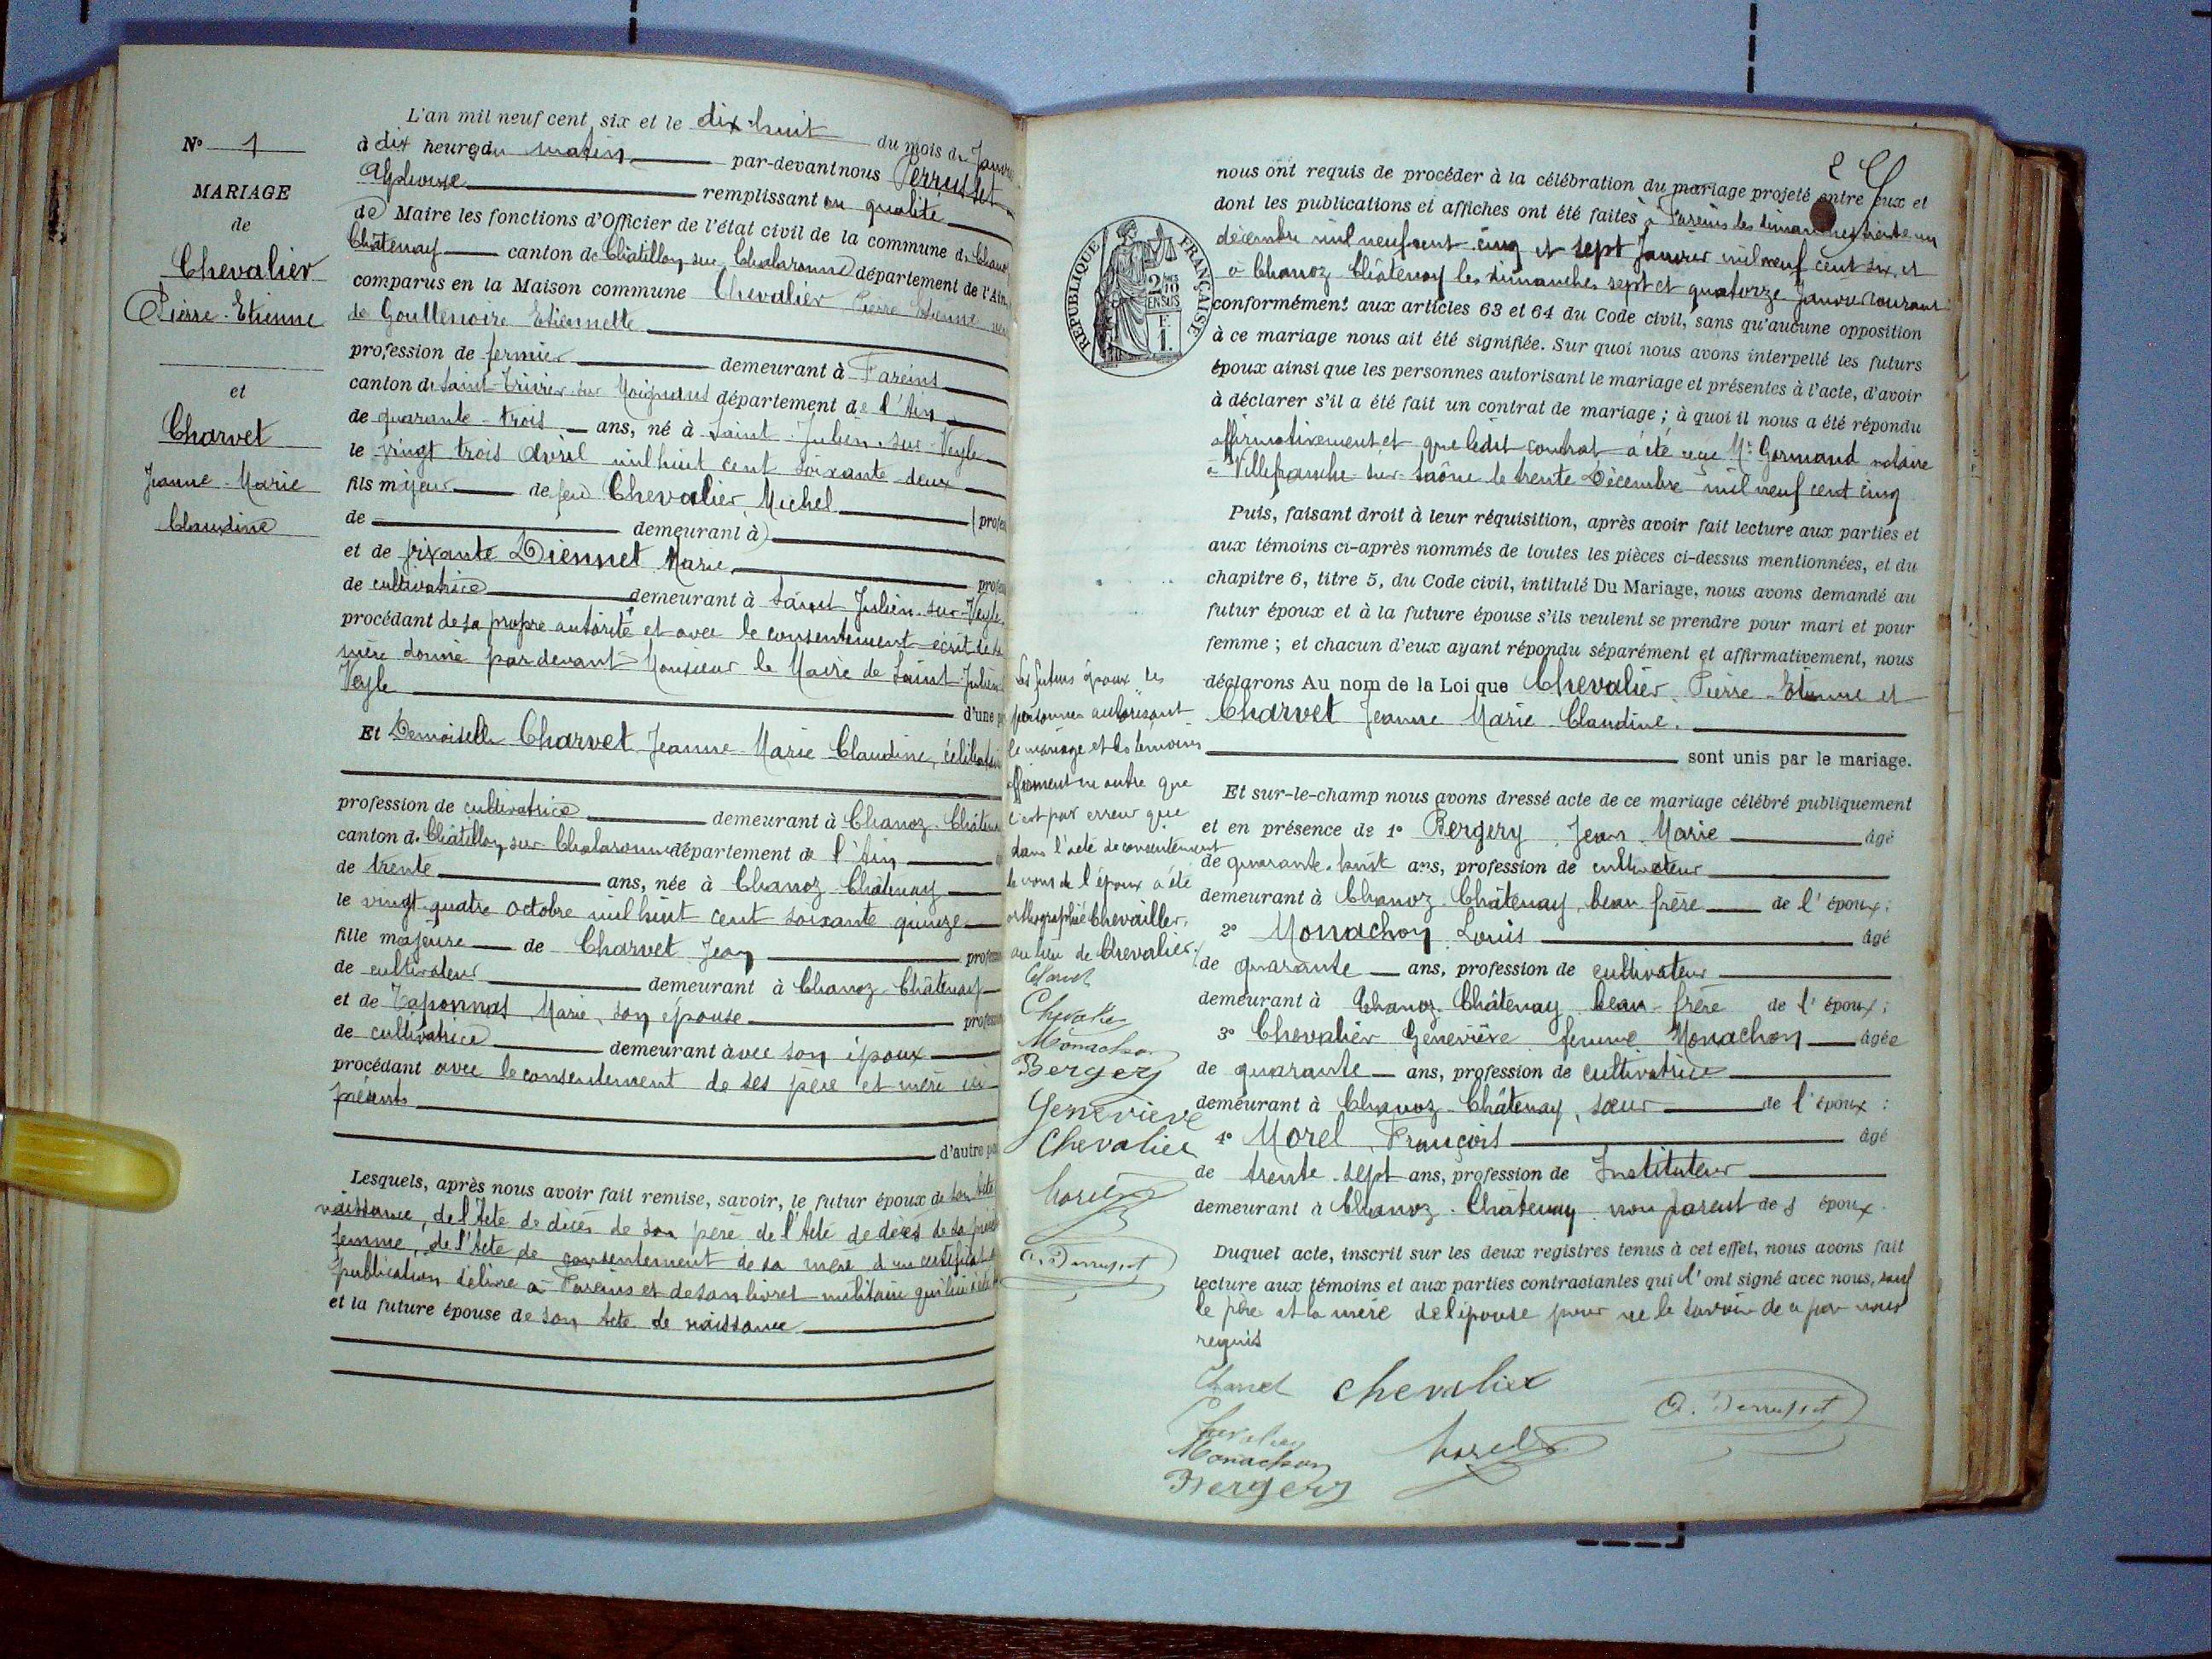 N° 1
MARIAGE
de
Chevalier
Pierre-Etienne
et
Charvet
Jeanne-Marie
Claudine
L'an mil neuf cent six et le dix-huit du mois de Janvier
à dix heures du matin par-devant nous Perrusset
Alphonse remplissant en qualité
de Maire les fonctions d'Officier de l'état civil de la commune de Chanoz
Châtenay canton de Châtillon sur Chalaronne département de l'Ain
comparus en la Maison commune Chevalier Pierre Etienne veuf
de Goullenoire Etiennette
profession de fermier demeurant à Fareins
canton de Saint-Trivier-sur Moignans département de l'Ain
de quarante-trois ans, né à Saint-Julien-sur-Veyle
le vingt trois Avril mil huit cent soixante-deux
fils majeur de feu Chevalier Michel (profes
de demeurant à)
et de vivante Diennet Marie profes
de cultivatrice demeurant à Saint Julien-sur-Veyle.
procédant de sa propre autorité et avec le consentement écrit de sa
mère donné par devant Monsieur le Maire de Saint-Julien
Veyle d'une p
Et Demoiselle Charvet Jeanne-Marie Claudine, célibataire
profession de cultivatrice demeurant à Chanoz-Châtenay
canton de Châtillon-sur-Chalaronne département de l'Ain
de trente ans, née à Chanoz-Châtenay
le vingt-quatre Octobre mil huit cent soixante quinze
fille majeure de Charvet Jean profess
de cultivateur demeurant à Chanoz-Châtenay
et de Taponnas Marie, son épouse profess
de cultivatrice demeurant avec son époux
procédant avec le consentement de ses père et mère ici
présents
d'autre pa
Lesquels, après nous avoir fait remise, savoir, le futur époux de son acte
naissance, de l'Acte de décès de son père de l'Acte de décès de sa première
femme, de l'Acte de consentement de sa mère d'un certificat de
publication délivré à Fareins et de son livret militaire qui lui a été
et la future épouse de son Acte de naissance
Les futurs époux les
personnes autorisant
le mariage et les témoins
affirment en outre que
c'est par erreur que
dans l'acte de consentement
le nom de l'époux a été
orthographié Chevailler,
au lieu de Chevalier.
Charvet
Chevalier
Monachon
Bergery
Geneviève
Chevalier
Morel
A. Perrusset
2
nous ont requis de procéder à la célébration du mariage projeté entre eux et
dont les publications et affiches ont été faites à Fareins les dimanches trente un
décembre mil neuf cent cinq et sept Janvier mil neuf cent six, et
à Chanoz-Châtenay les dimanches sept et quatorze Janvier courant
conformément aux articles 63 et 64 du Code civil, sans qu'aucune opposition
à ce mariage nous ait été signifiée. Sur quoi nous avons interpellé les futurs
époux ainsi que les personnes autorisant le mariage et présentes à l'acte, d'avoir
à déclarer s'il a été fait un contrat de mariage ; à quoi il nous a été répondu
affirmativement et que ledit contrat a été reçu Me Germand notaire
à Villefranche-sur-Saône le trente Décembre mil neuf cent cinq
Puis, faisant droit à leur réquisition, après avoir fait lecture aux parties et
aux témoins ci-après nommés de toutes les pièces ci-dessus mentionnées, et du
chapitre 6, titre 5, du Code civil, intitulé Du Mariage, nous avons demandé au
futur époux et à la future épouse s'ils veulent se prendre pour mari et pour
femme ; et chacun d'eux ayant répondu séparément et affirmativement, nous
déclarons Au nom de la Loi que Chevalier Pierre-Etienne et
Charvet Jeanne Marie Claudine.
sont unis par le mariage.
Et sur-le-champ nous avons dressé acte de ce mariage célébré publiquement
et en présence de 1° Bergery Jean Marie âgé
de quarante-huit ans, profession de cultivateur
demeurant à Chanoz Châtenay, beau frère de l'époux ;
2° Monachon Louis âgé
de quarante ans, profession de cultivateur
demeurant à Chanoz Châtenay beau-frère de l'époux ;
3° Chevalier Geneviève femme Monachon âgée
de quarante ans, profession de cultivatrice
demeurant à Chanoz-Châtenay, sœur de l'époux :
4° Morel François âgé
de trente-sept ans, profession de Instituteur
demeurant à Chanoz-Châtenay non parent des époux.
Duquel acte, inscrit sur les deux registres tenus à cet effet, nous avons fait
lecture aux témoins et aux parties contractantes qui l'ont signé avec nous, sauf
le père et la mère de l'épouse pour ne le savoir de ce par nous
requis
Charvet Chevalier A. Perrusset
Chevalier
Monachon Morel
Bergery
RÉPUBLIQUE FRANÇAISE
2/10 EN SUS
F.
1.